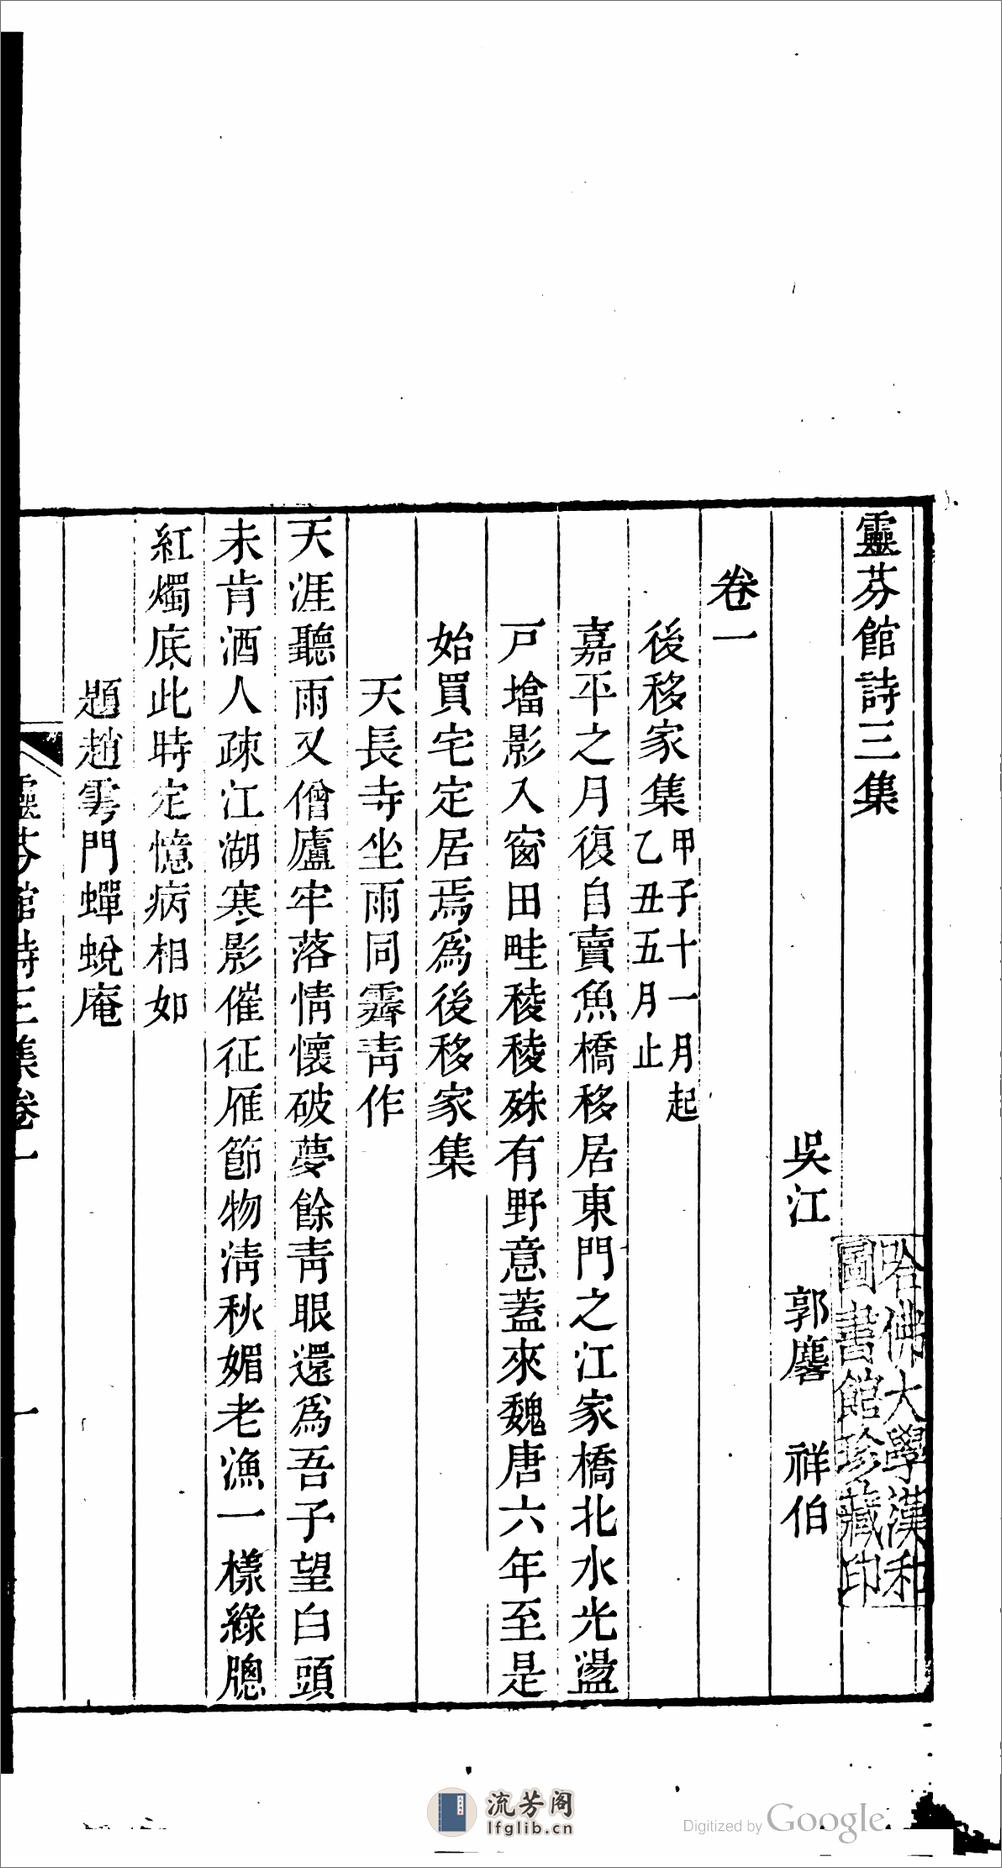 靈芬館詩三集
吳江 郭麐 祥伯
卷一
後移家集甲子十一月起
乙丑五月止
嘉平之月復自賣魚橋移居東門之江家橋北水光盪
戸墖影入窗田畦稜稜殊有野意蓋來魏唐六年至是
始買宅定居焉爲後移家集
天長寺坐雨同霽靑作
天涯聽雨又僧廬牢落情懷破夢餘靑眼還爲吾子望白頭
未肯酒人疎江湖寒影催征雁節物淸秋媚老漁一樣綠牕
紅燭底此時定憶病相如
題趙雩門蟬蛻庵
靈芬館詩三集卷一
一
哈佛大學漢和
圖書館珍藏印
流芳阁
lfglib.cn
Digitized by Google